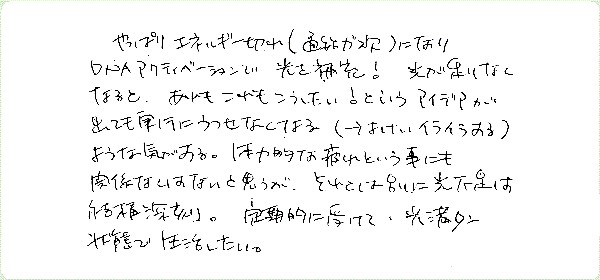 やっぱりエネルギー切れ(直結ガス欠)になり
DNAアクティベーションで 光を補充! 光が果てなく
なると、あれもこれもこうしたい!というアイデアが
出ても実行にうつせなくなる(→よけいイライラする)
ような気がする。体力的な疲れという事にも
関係なくはないと思うが、それとは別に光不足は
結構深刻。定期的に受けて、光満タン
状態で生活したい。